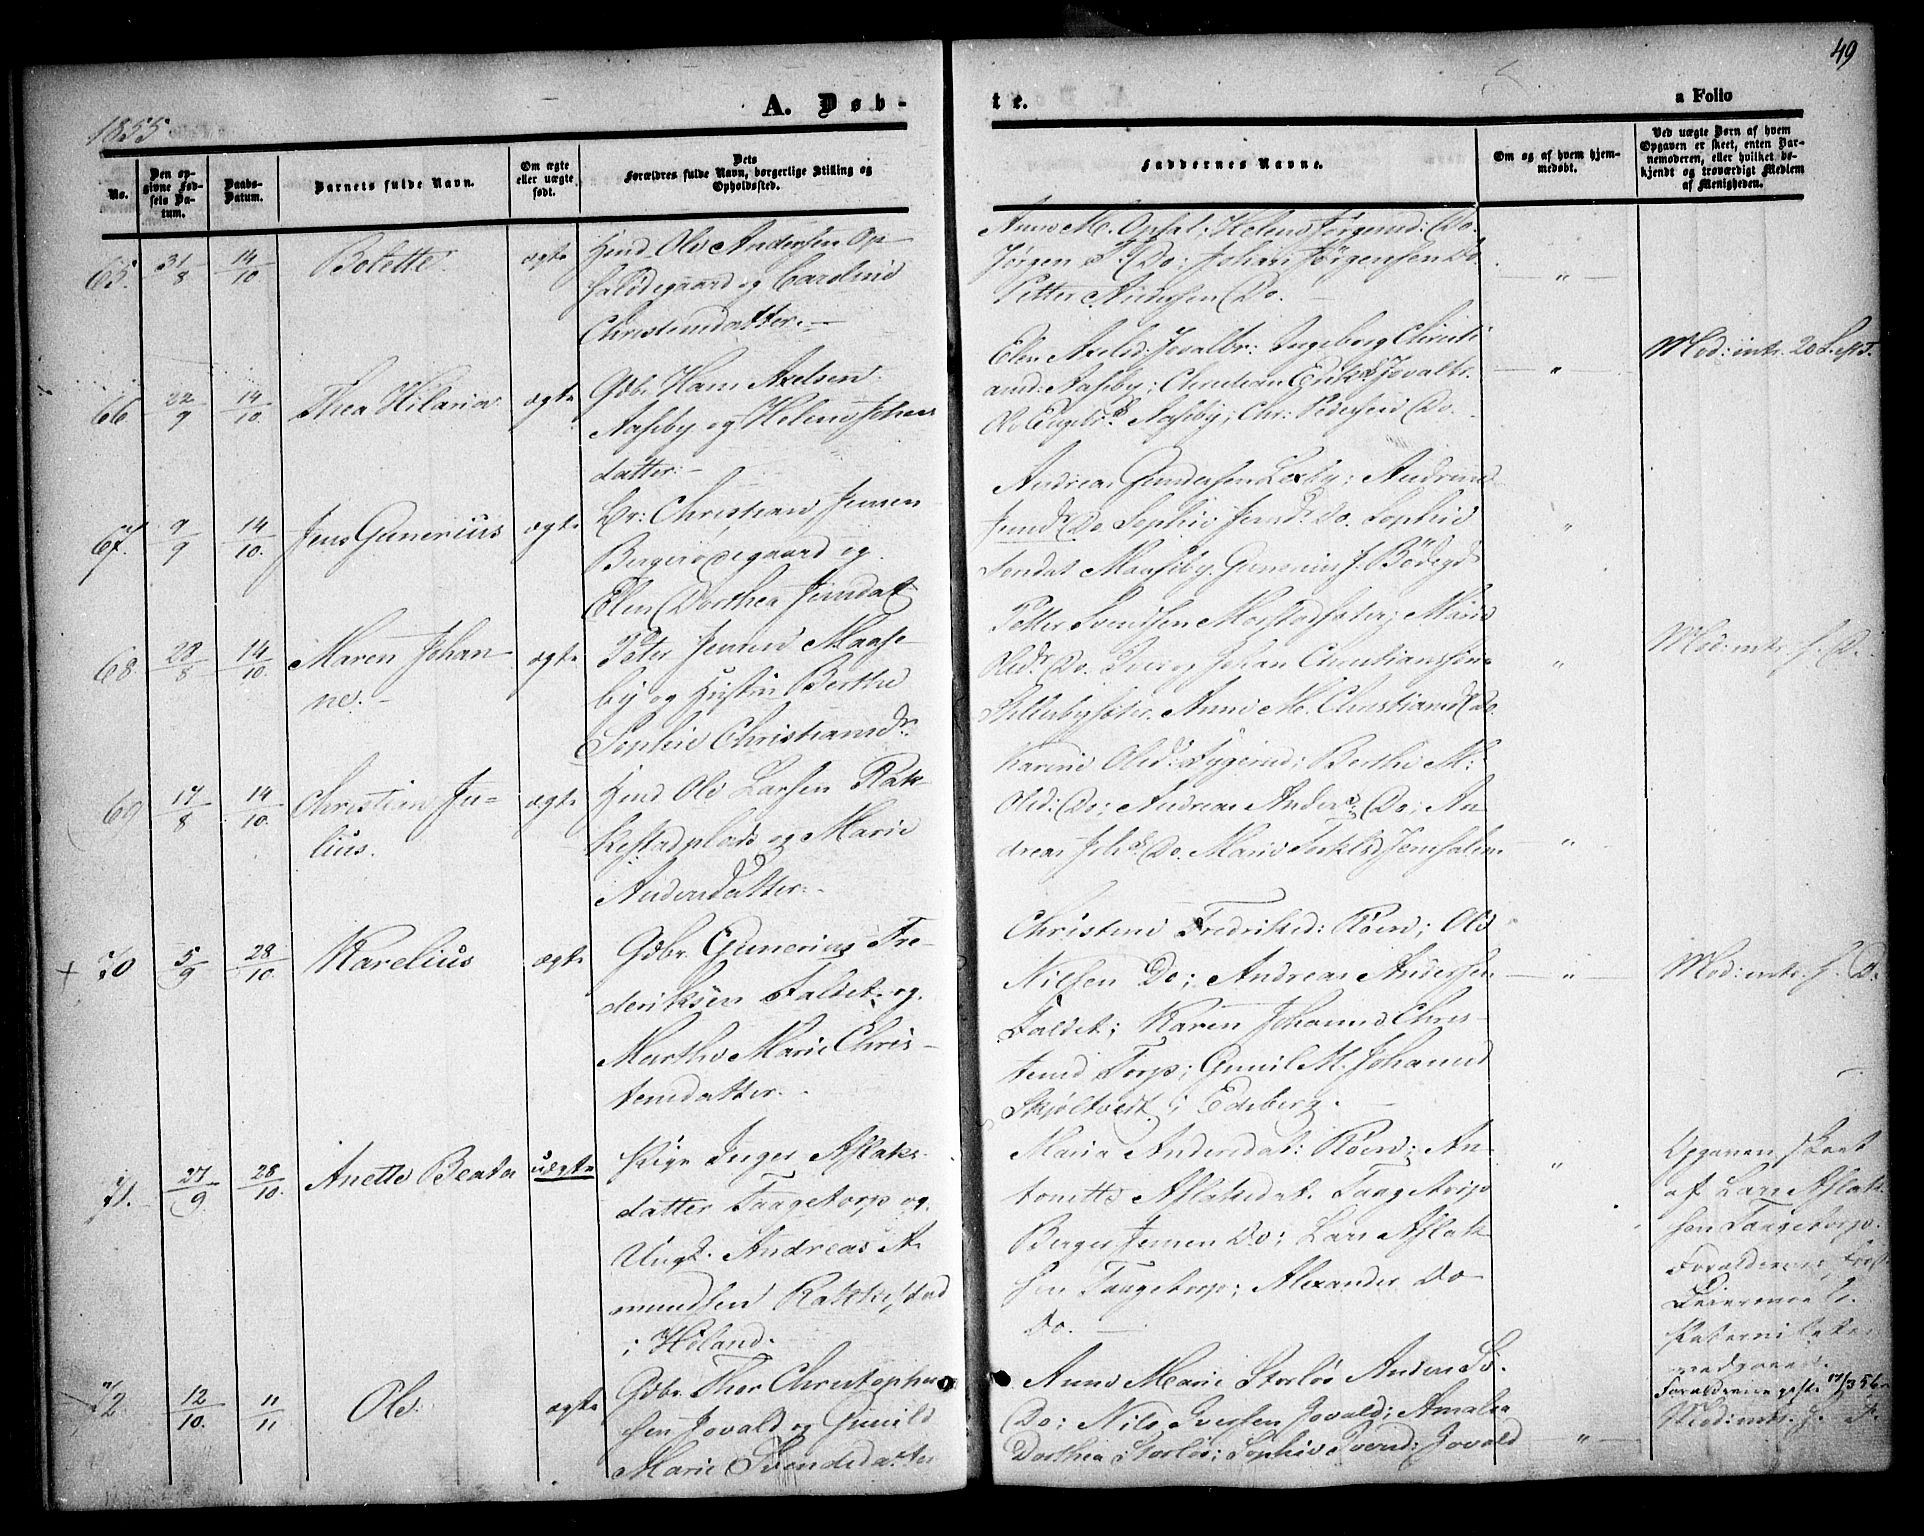 49
A. Døb-
te.
a Folio
1855
No.
Den op-
givne Fød-
sels Da-
tum.
Daabs-
Datum.
Barnets fulde Navn.
Om ægte
eller uægte
født.
Dets
Forældres fulde Navn, borgerlige Stilling og
Opholdssted.
Faddernes Navne.
Om og af hvem hjem-
medøbt.
Ved uægte Børn af hvem
Opgaven er skeet, enten Bar-
nemoderen, eller hvilket be-
kjendt og troværdigt Medlem
af Menigheden.
65. 31/8 14/10 Bolette. ægte
Hmd Ole Andersen Op-
saldegaard og Caroline
Christensdatter.
Anne M. Opsal: Helene Jørgensd: Do.
Jørgen Do; Johan Jörgensen Do.
Petter Andersen Do.
66. 22/9 14/10 Thea Hilaria ægte
Gdbr. Hans Axelsen
Aaseby og Helene Johans
datter.
Elen Axelsd: Jovalbr: Ingeborg Christi
ansd: Aaseby; Christian Jovalbr.
Aaseby; Chr: Pedersen Do.
Mod: intr. 20 Sept.
67. 9/9 14/10 Jens Gunerius ægte
Br: Christian Jensen
Bergerødegaard og
Elen Dorthea Jensdat
Andreas Gundersen Lexby; Andrine
Jensdr Do Sophie Jensd. Do. Sophie
Maaseby. Gunerius J. Bödegd
68. 29/8 14/10 Maren Johan-
ne.
ægte
Peter Jensen Maase-
by og Hustru Berthe
Sophie Christiansdr.
Petter Svendsen Morstadsæter; Marie
Olsdr Do. Iver og Johan Christianssen
Anne M. Christiansd Do.
Mod: intr. s. D.
69 17/8 14/10 Christian Ju-
lius.
ægte
Hmd Ole Larsen Rak-
kestadplads og Marie
Andersdatter.
Karine Olsd: Berthe M:
Olsd: Do; Andreas Anders: Do; An-
dreas Do. Marie Jerusalem
70 5/9 28/10. Karelius ægte
Gdbr. Gunerius Fre-
deriksen Faldet og
Marthe Marie Chris-
tensdatter.
Christine Fredriksd: Röerd; Ole
Nielsen Do; Andreas Andersen
Faldet; Karen Johanne Chris-
tensd Torp; Gunil M. Johannesd
Skjöltvedt i Edsberg.
Mod: intr. s. D.
71. 27/9 28/10. Anette Beata uægte
Pige Inger Aslaks-
datter Taagetorp og
Ungk. Andreas A-
mundsen Rakkestad
i Höland.
Maria Andersdat: Röerd; An-
tonette Aslaksdat. Taagetorp
Berger Jensen Do; Lars Aslak-
sen Taagetorp; Alexander Do
Do.
Opgaven skeet
af Lars Aslak-
sen Taagetorp.
Forældrenes første
Leiermaal.
Paterniteten
vedgaaet.
Forældrene gifte 17/3 56
72 12/10. 11/11 Ole. ægte
Gdbr. Thor Christopher
sen Jovald og Gunild
Marie Svendsdatter
Anne Marie Storløs Anders
Do; Nils Iversen Jovald; Amalia
Dorthea Storløs; Sophie Iversd: Jovald
Mod: intr. s. D.